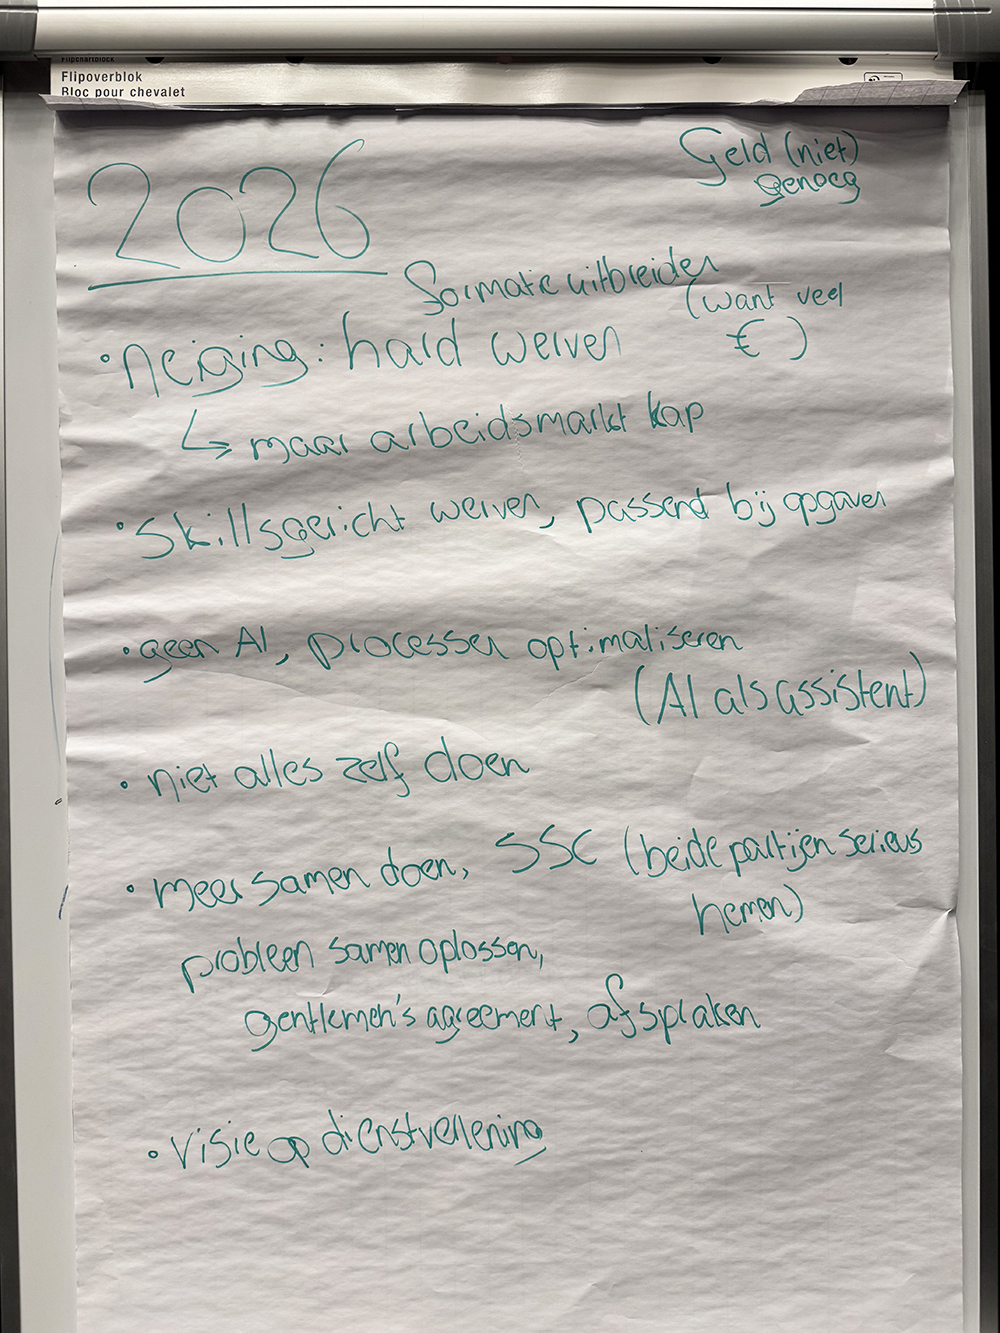 Flipchartblock
Flipoverblok
Bloc pour chevalet
2026
Geld (niet)
genoeg
formatie uitbreiden
(want veel
€)
• neiging: hard werven
↳ maar arbeidsmarkt krap
• Skillsgericht werven, passend bij opgaven
• geen AI, processen optimaliseren
(AI als assistent)
• niet alles zelf doen
• meer samen doen, SSC (beide partijen serieus
nemen)
probleem samen oplossen,
gentlemen's agreement, afspraken
• visie op dienstverlening